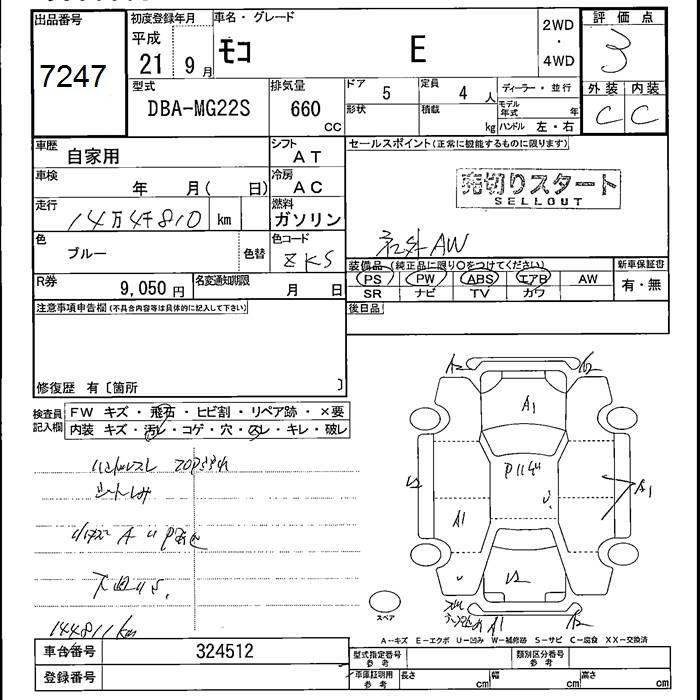 出品番号
7247
初度登録年月
平成
21 9 月
車名・グレード
モコ E
2WD
・
4WD
評価点
3
外装 内装
C C
型式
DBA-MG22S
排気量
660
CC
ドア 5
定員 4 人
形状
積載 kg
ディーラー・並行
モデル年式 年
ハンドル 左・右
車歴 自家用
シフト AT
セールスポイント(正常に機能するものに限ります)
車検 年 月( 日)
冷房 AC
売切りスタート
SELLOUT
走行 14万4千810 km
燃料 ガソリン
社外AW
色 ブルー 色替
色コード ZKS
装備品(純正品に限り○をつけてください)
新車保証書
PS PW ABS エアB AW
有・無
SR ナビ TV カワ
R券 9,050 円
名変通知期限 月 日
後日品
注意事項申告欄(不具合内容等は具体的に記入して下さい)
修復歴 有〔箇所 〕
検査員記入欄
FW キズ・飛石・ヒビ割・リペア跡・×要
内装 キズ・汚レ・コゲ・穴・スレ・キレ・破レ
ハンドルスレ
シートしみ
下廻りS
144811km
A2
A1
A1
A1
A1
スペア
A--キズ E--エクボ U--凹み W--補修跡 S--サビ C--腐食 XX--交換済
車台番号 324512
型式指定番号 参考
類別区分番号 参考
登録番号
車庫証明用 参考
長さ cm 幅 cm 高さ cm